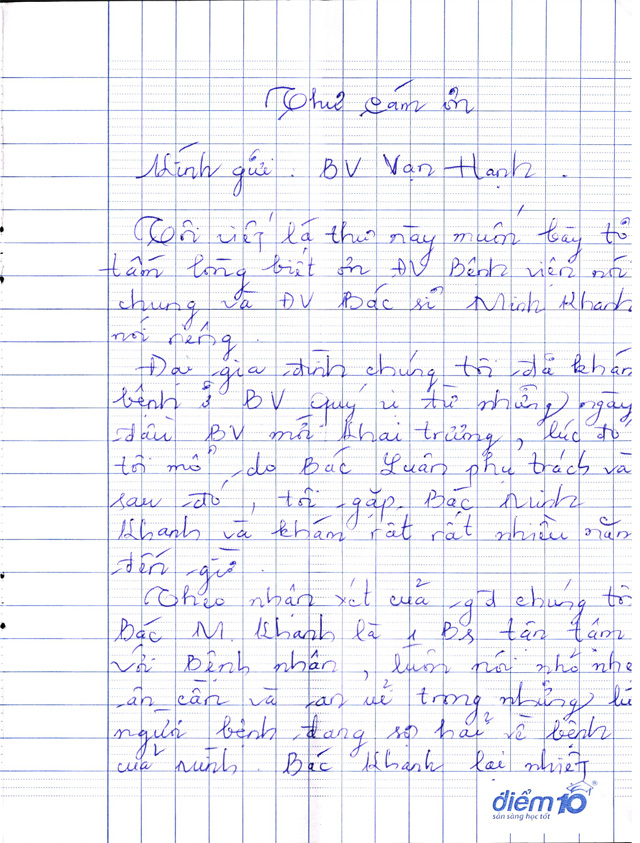 Thư cảm ơn
Kính gửi : BV Vạn Hạnh .
Tôi viết lá thư này muốn bày tỏ
tấm lòng biết ơn ĐV Bệnh viện nói
chung và ĐV Bác sĩ Minh Khanh
nói riêng .
Đại gia đình chúng tôi đã khám
bệnh ở BV quý vị từ những ngày
đầu BV mới khai trương, lúc đó
tôi mổ do Bác Luân phụ trách và
sau đó, tôi gặp Bác Minh
Khanh và khám rất rất nhiều năm
đến giờ .
Theo nhận xét của gđ chúng tôi
Bác M. Khanh là 1 Bs tận tâm
với Bệnh nhân, luôn nói nhỏ nhẹ
ân cần và an ủi trong những lú
người bệnh đang sợ hãi về bệnh
của mình . Bác Khanh lại nhiệt
điểm 10
sẵn sàng học tốt